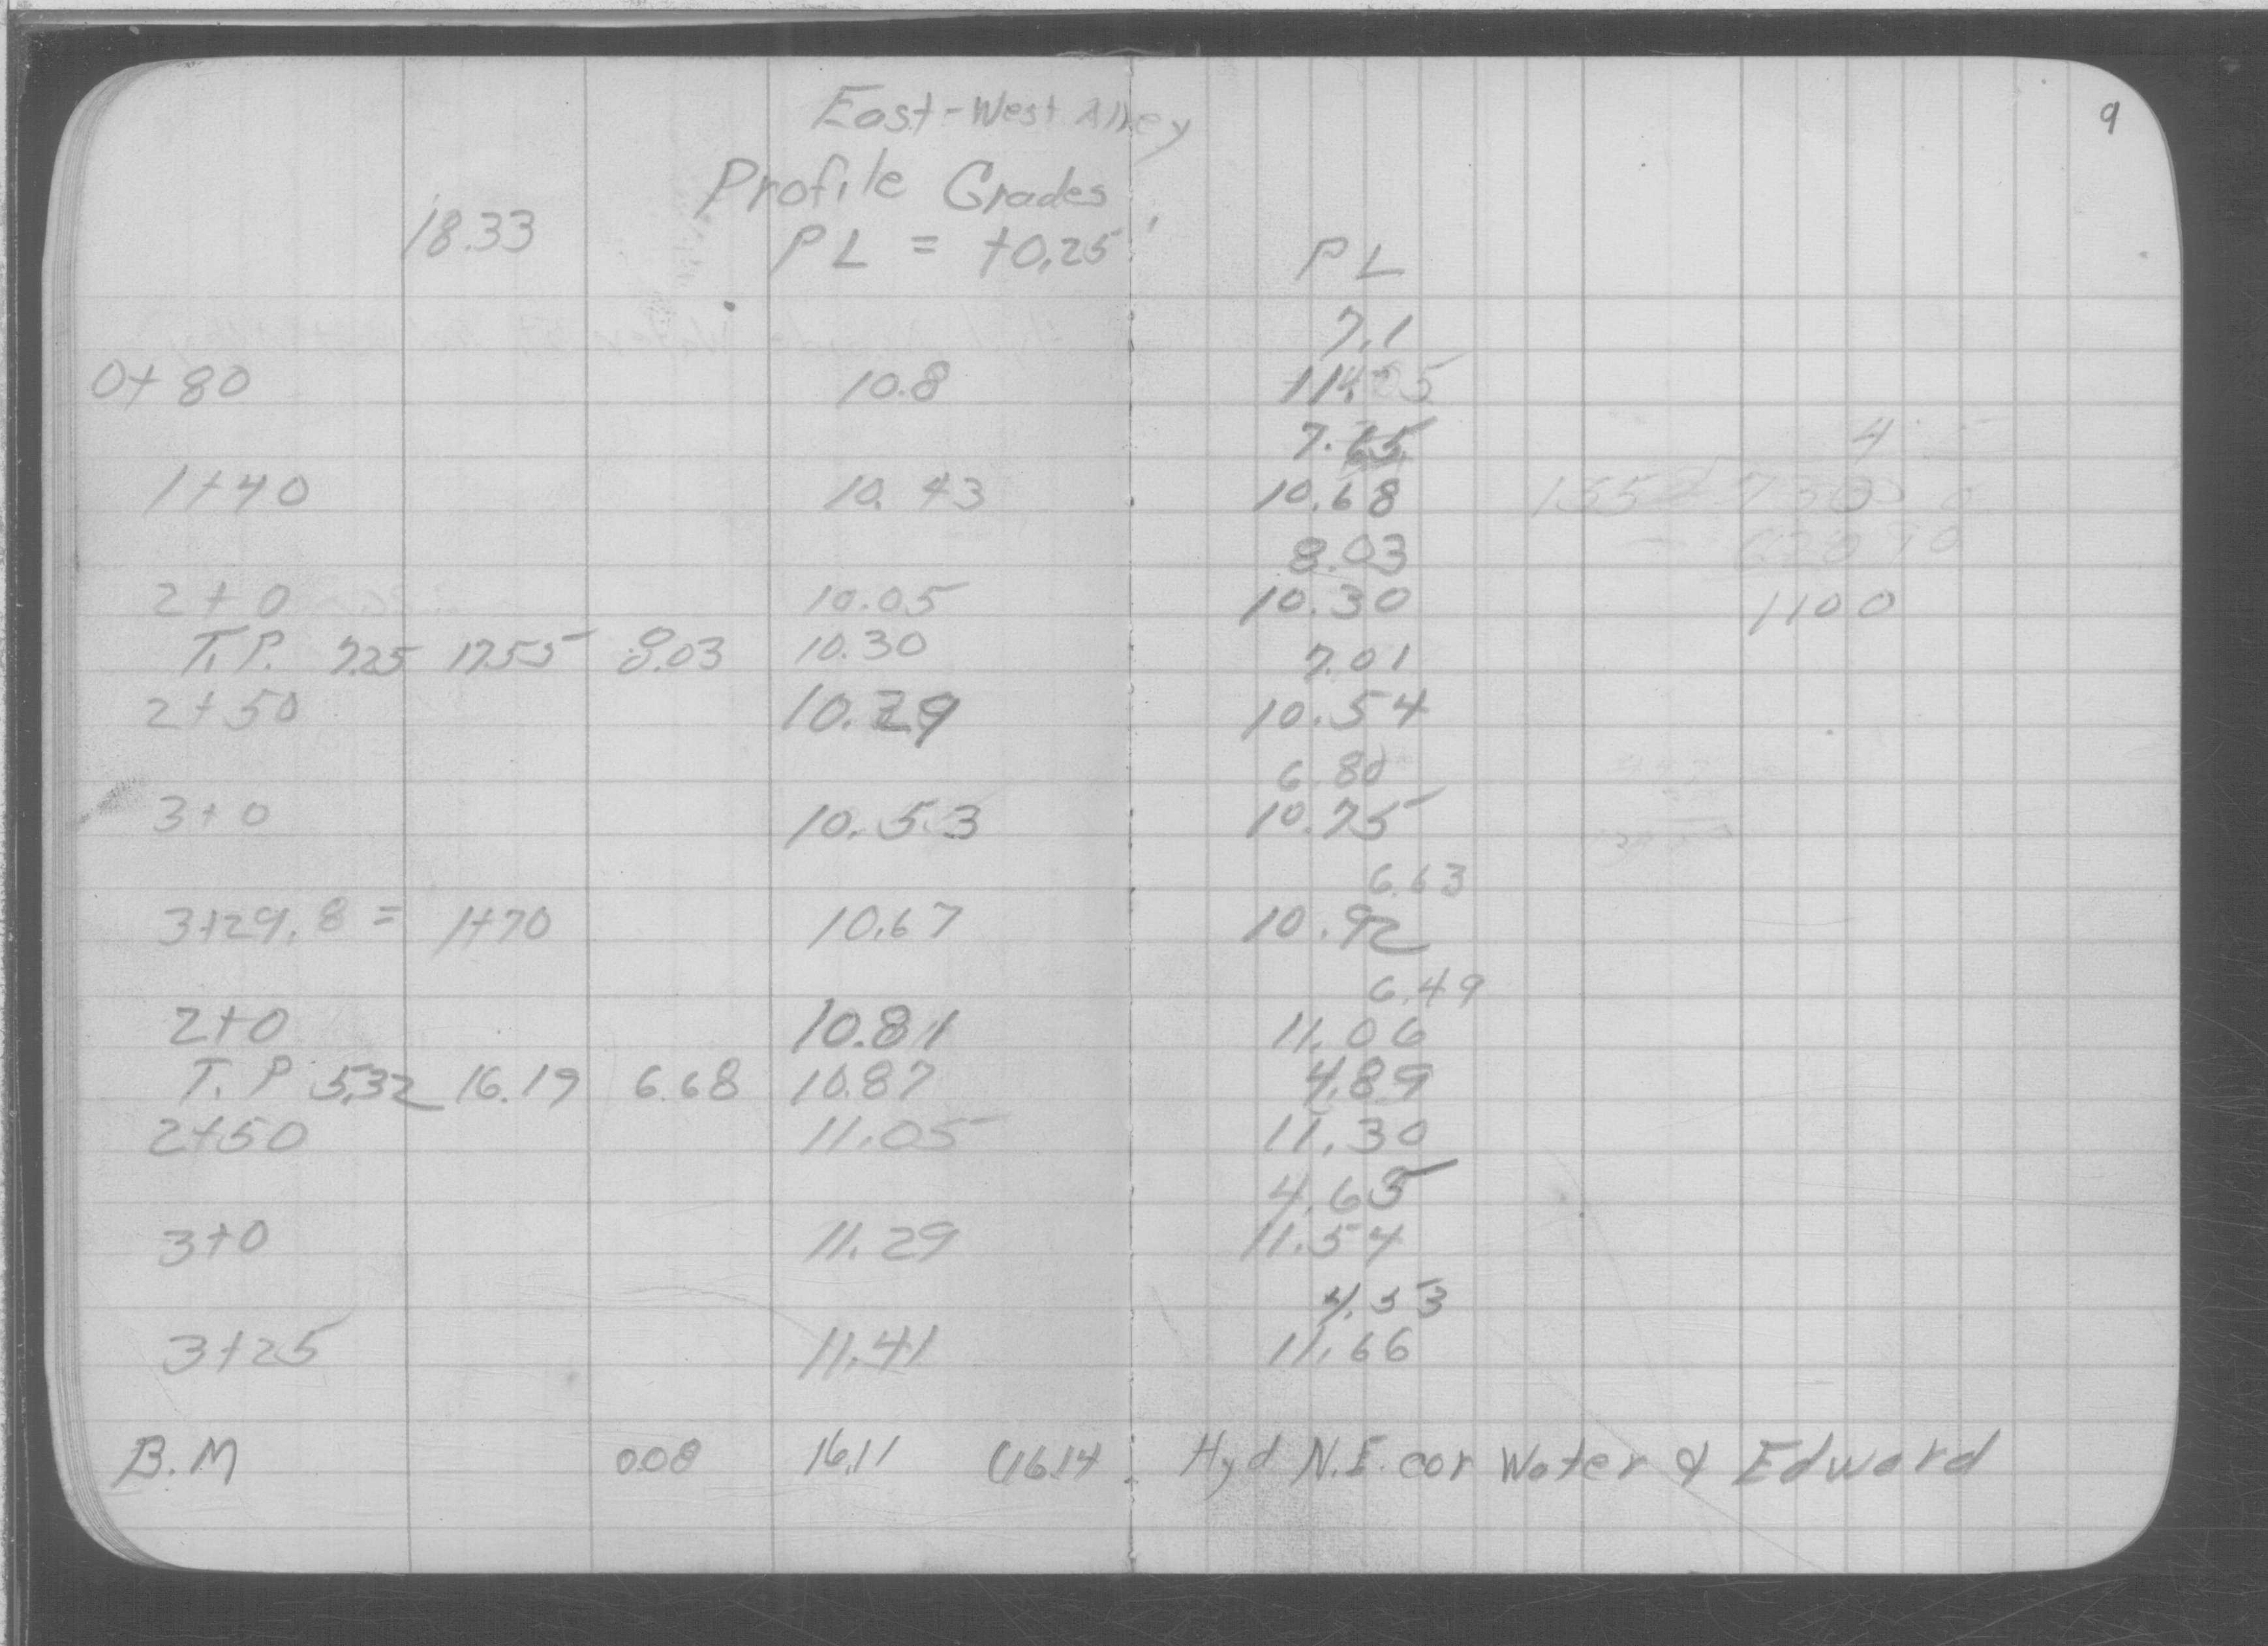 East-West Alley
9
Profile Grades
18.33 PL = +0.25' PL
7.1
0+80 10.8
7.65 4
1+40 10.43 10.68
8.03
2+0 10.05 10.30 1100
T.P. 7.25 17.55 8.03 10.30 7.01
2+50 10.29 10.54
6.80
3+0 10.53 10.75
6.63
3+29.8 = 1+70 10.67 10.92
6.49
2+0 10.81 11.06
T.P 5.32 16.19 6.68 10.87 4.89
2+50 11.05 11.30
4.65
3+0 11.29 11.54
4.53
3+25 11.41 11.66
B.M 0.08 16.11 (16.14 Hyd N.E. cor Water & Edward